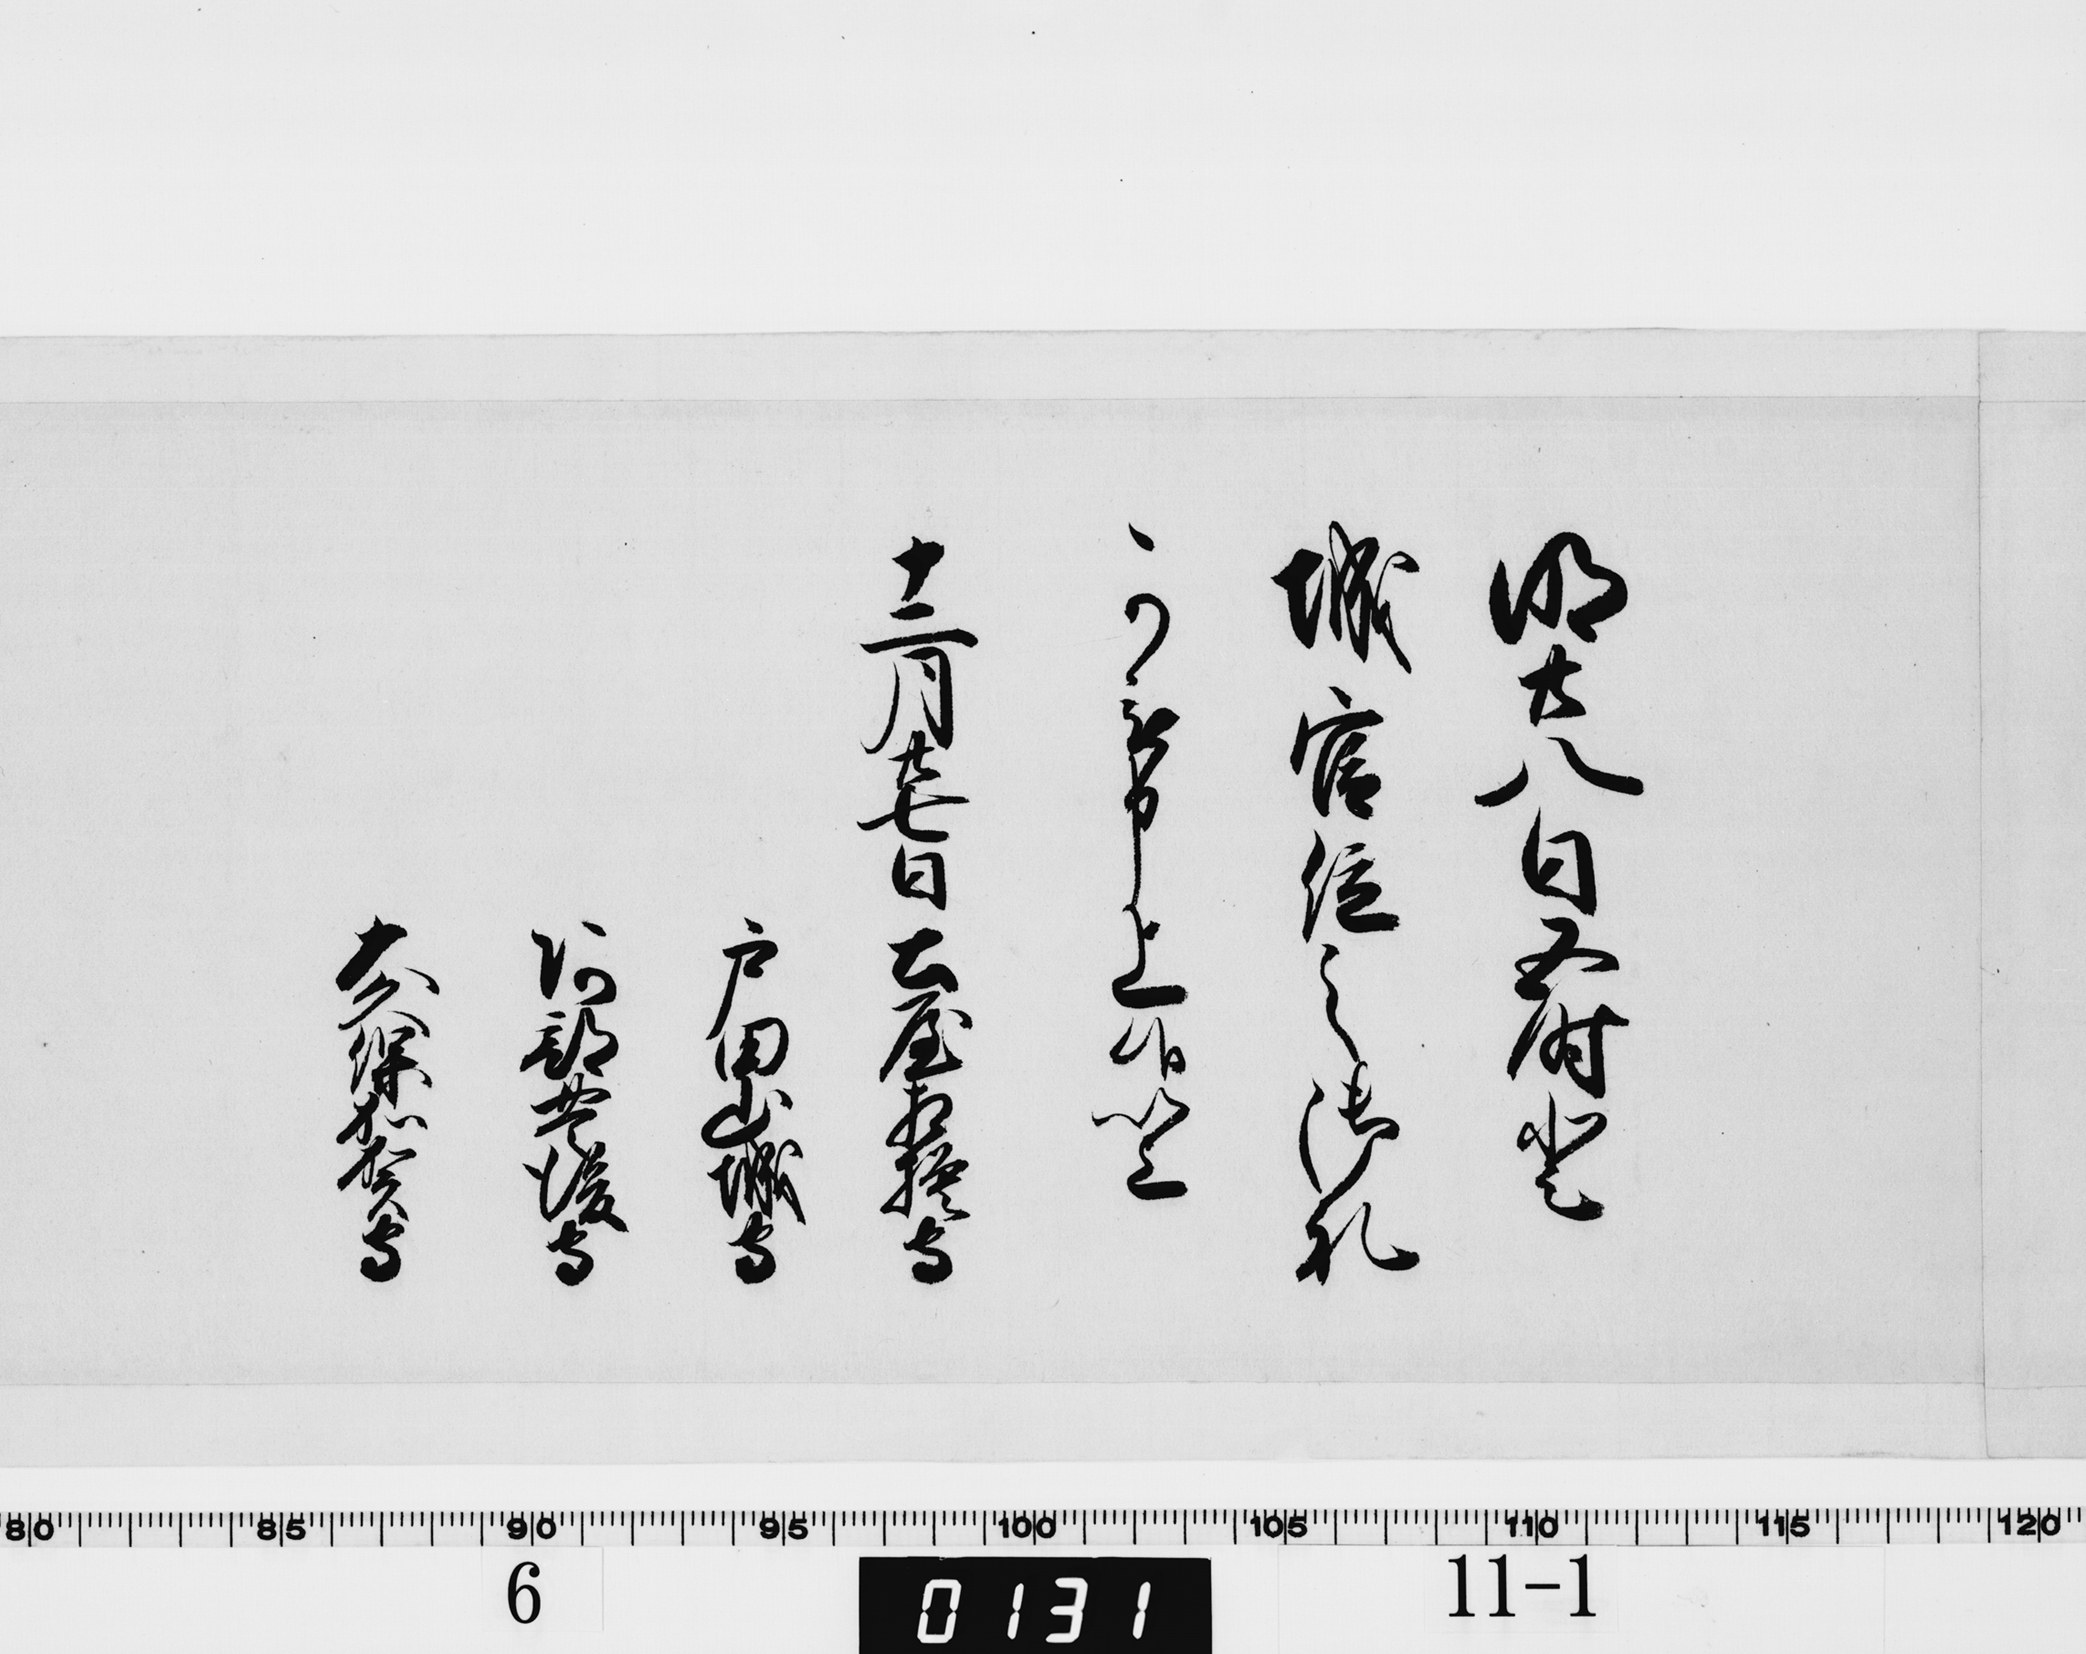 明廿八日五時登
城官位之御礼
可被申上候以上
十二月廿七日 土屋相模守
戸田山城守
阿部豊後守
大久保加賀守
80 85 90 95 100 105 110 115 120
6 0131 11-1